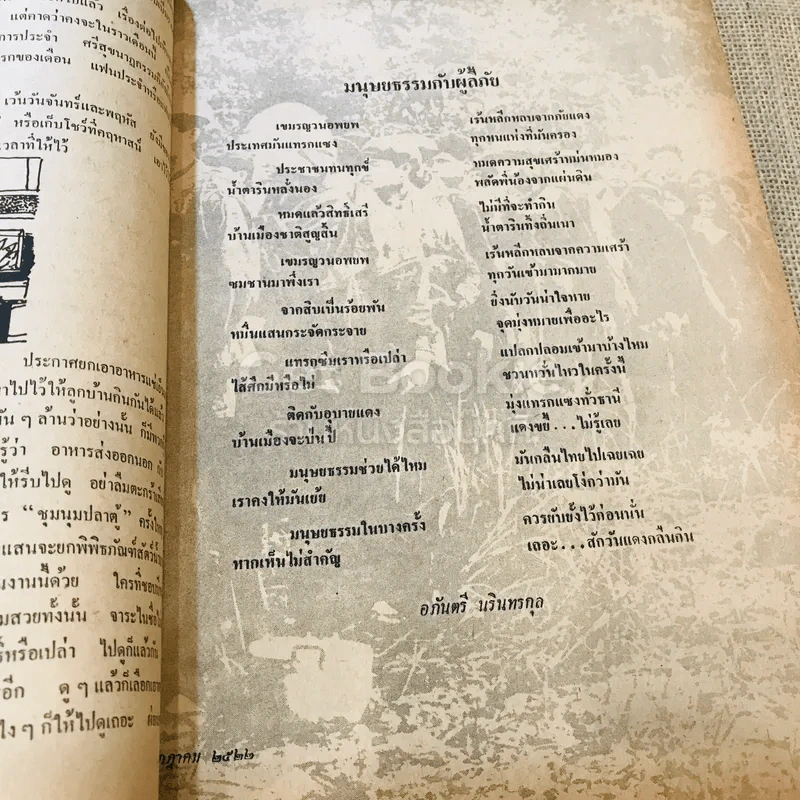 แต่คาดว่าคงจะในราวเดือนนี้
การประจำ ศรีสุขนาฏกรรม
แรกของเดือน แฟนประจำ
เว้นวันจันทร์และพฤหัส
หรือเก็บโชว์ที่คฤหาสน์
เวลาที่ให้ไว้
ประกาศยกเอาอาหารแช่
าไปไว้ให้ลูกบ้านกินกันได้แล้ว
ัน ๆ ล้านว่าอย่างนั้น ก็มี
รู้ว่า อาหารส่งออกนอก
ให้รีบไปดู อย่าลืมตะกร้า
ร "ชุมนุมปลาตู้" ครั้ง
แสนจะยกพิพิธภัณฑ์สัตว์
มงานนี้ด้วย ใครที่ชอบ
มสวยทั้งนั้น จาระไนชื่อ
ร์หรือเปล่า ไปดูก็แล้วกัน
อีก ดู ๆ แล้วก็เลือก
ไง ๆ ก็ให้ไปดูเถอะ
กฎาคม ๒๕๒๒
มนุษยธรรมกับผู้ลี้ภัย
เขมรญวนอพยพ เร้นหลีกหลบจากภัยแดง
ประเทศมันแทรกแซง ทุกหนแห่งที่มันครอง
ประชาชนทนทุกข์ หมดความสุขเศร้าหม่นหมอง
น้ำตารินหลั่งนอง พลัดพี่น้องจากแผ่นดิน
หมดแล้วสิทธิ์เสรี ไม่มีที่จะทำกิน
บ้านเมืองชาติสูญสิ้น น้ำตารินทิ้งถิ่นเนา
เขมรญวนอพยพ เร้นหลีกหลบจากความเศร้า
ซมซานมาพึ่งเรา ทุกวันเข้ามามากมาย
จากสิบเป็นร้อยพัน ยิ่งนับวันน่าใจหาย
หมื่นแสนกระจัดกระจาย จุดมุ่งหมายเพื่ออะไร
แทรกซึมเราหรือเปล่า แปลกปลอมเข้ามาบ้างไหม
ไส้ศึกมีหรือไม่ ชวนหวั่นไหวในครั้งนี้
ติดกับอุบายแดง มุ่งแทรกแซงทั่วธานี
บ้านเมืองจะป่นปี้ แดงขยี้...ไม่รู้เลย
มนุษยธรรมช่วยได้ไหม มันกลืนไทยไปเฉยเฉย
เราคงให้มันเย้ย ไม่น่าเลยโง่กว่ามัน
มนุษยธรรมในบางครั้ง ควรยับยั้งไว้ก่อนนั่น
หากเห็นไม่สำคัญ เถอะ...สักวันแดงกลืนกิน
อภันตรี นรินทรกุล